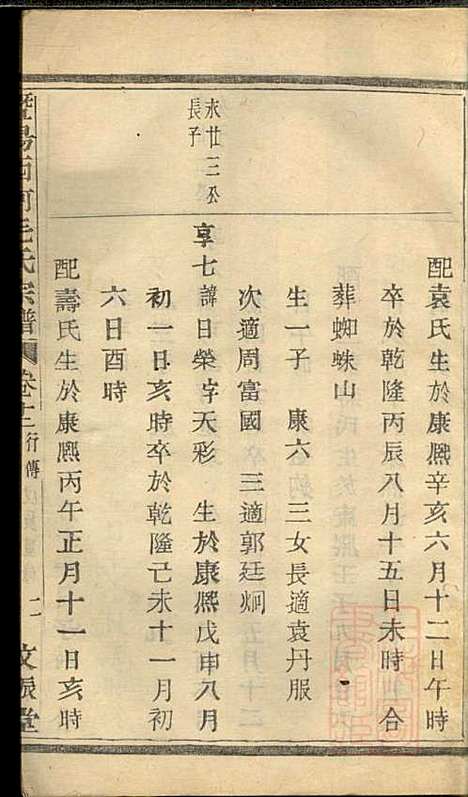 配袁氏生於康熙辛亥六月十二日午時
卒於乾隆丙辰八月十五日未時 合
葬蜘蛛山
生一子 康六 三女長適袁丹服
次適周富國 三適郭廷炯
永廿三公
長子
享七諱日榮字天彩 生於康熙戊申八月
初一日亥時卒於乾隆己未十一月初
六日酉時
配壽氏生於康熙丙午正月十一日亥時
暨陽 河毛氏宗譜 卷十二 行傳 二 文振堂